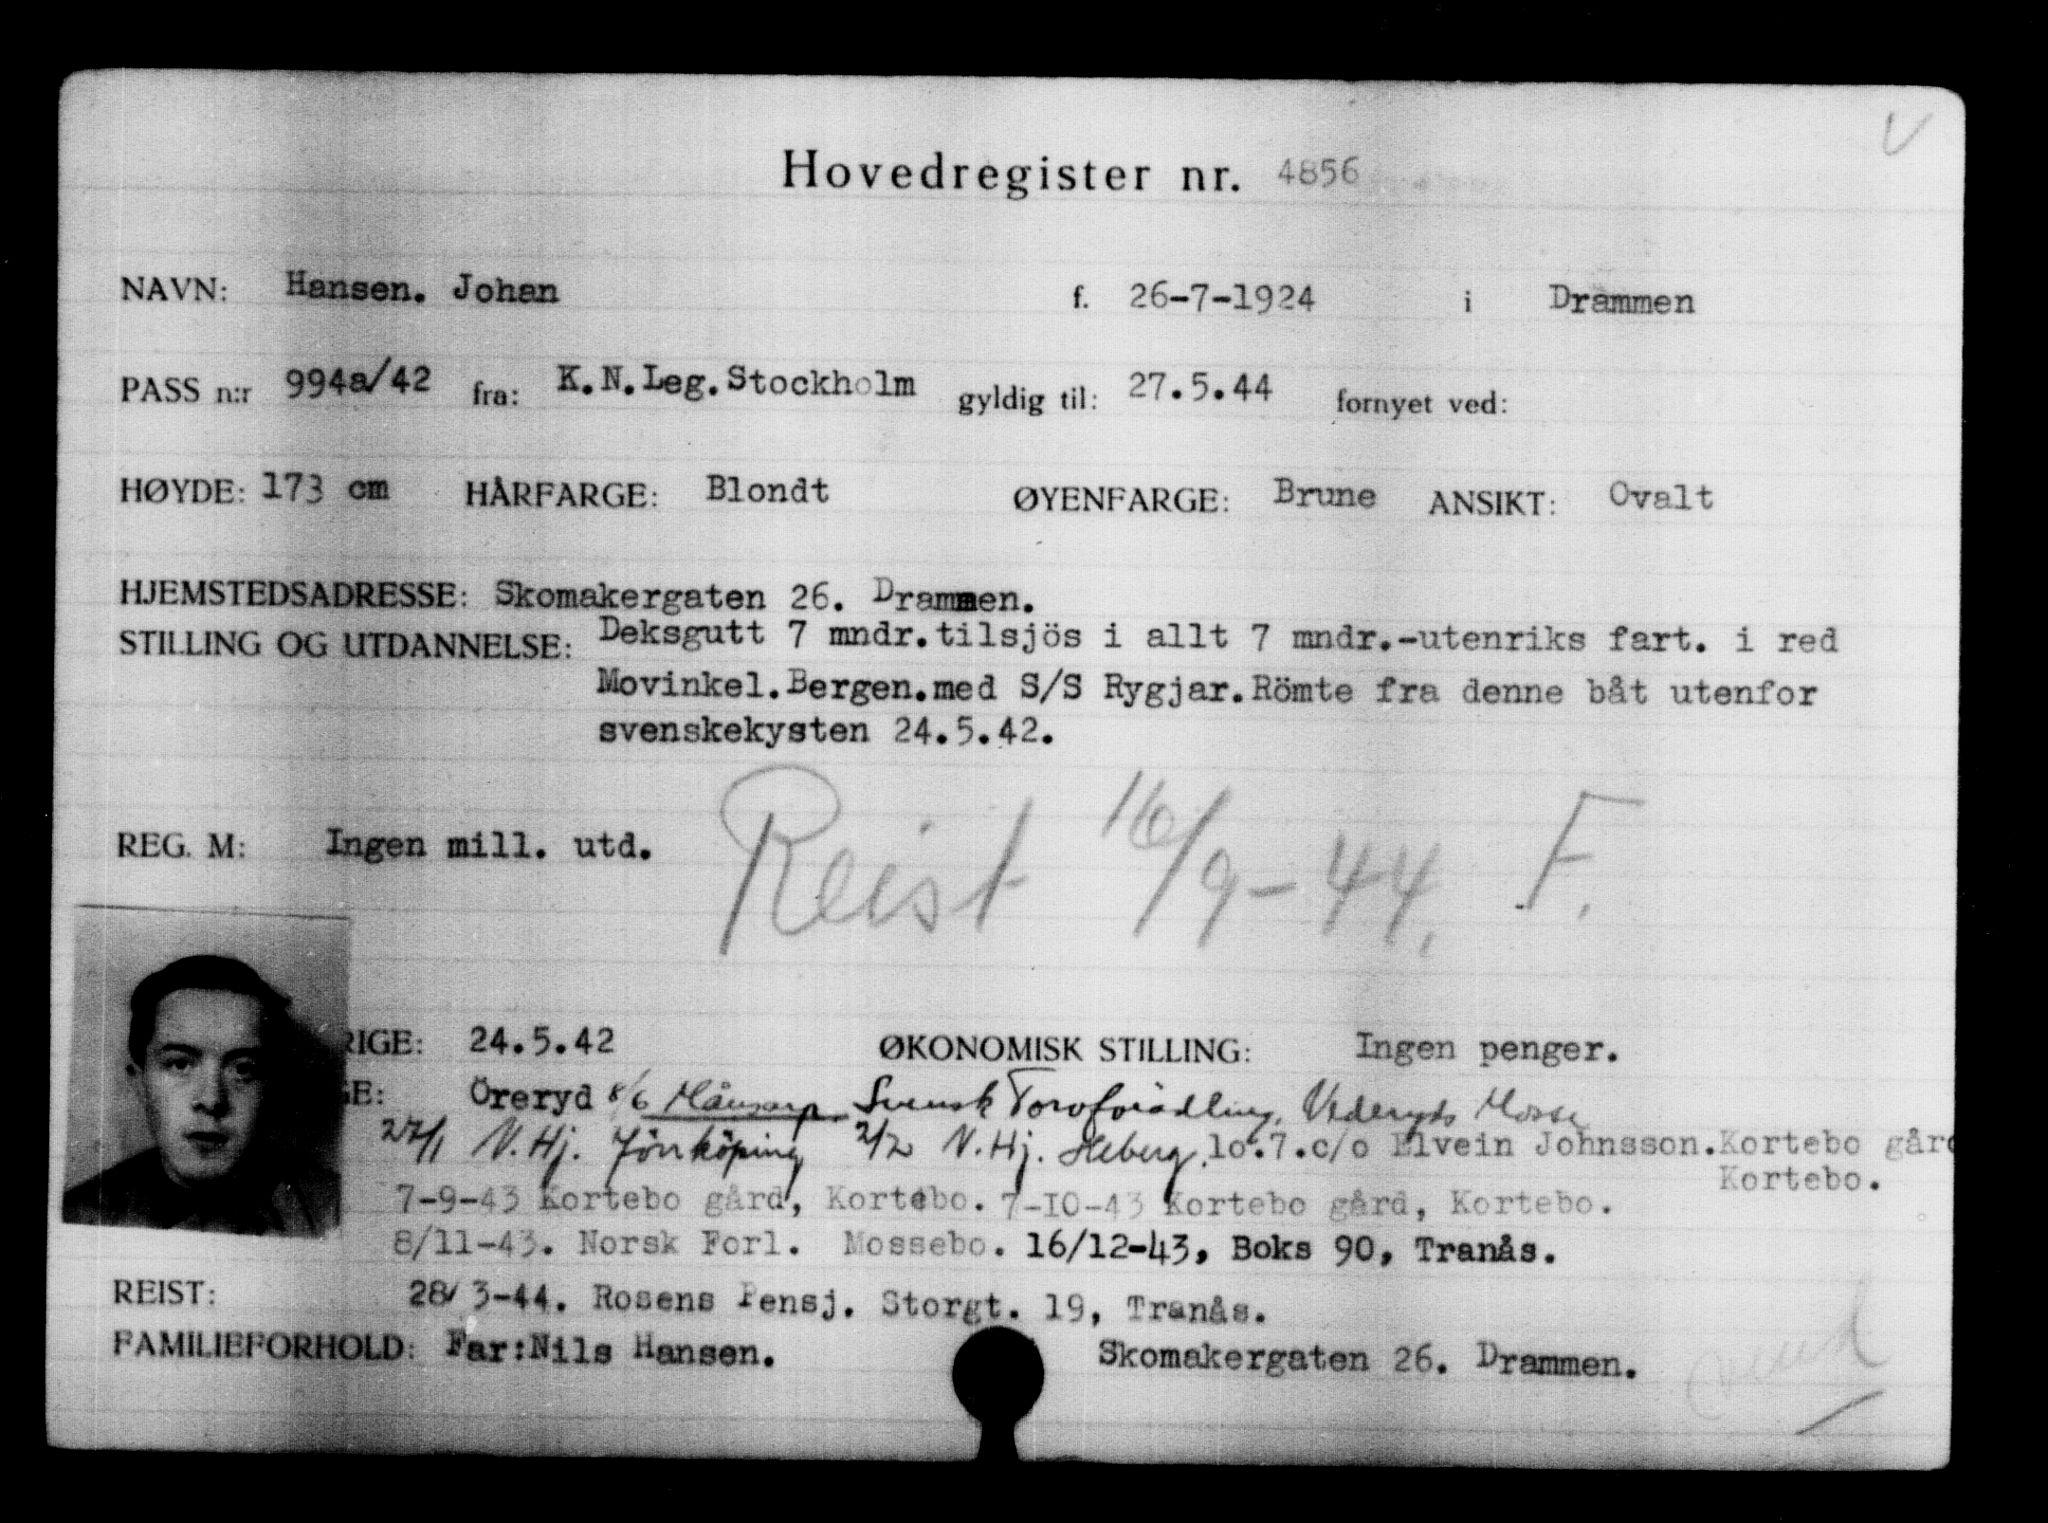 Hovedregister nr. 4856
NAVN: Hansen. Johan f. 26-7-1924 i Drammen
PASS n:r 994a/42 fra: K.N.Leg.Stockholm gyldig til: 27.5.44 fornyet ved:
HØYDE: 173 cm HÅRFARGE: Blondt ØYENFARGE: Brune ANSIKT: Ovalt
HJEMSTEDSADRESSE: Skomakergaten 26. Drammen.
STILLING OG UTDANNELSE: Deksgutt 7 mndr.tilsjös i allt 7 mndr.-utenriks fart. i red
Movinkel.Bergen.med S/S Rygjar.Römte fra denne båt utenfor
svenskekysten 24.5.42.
REG. M: Ingen mill. utd. Reist 16/9-44. F.
RIGE: 24.5.42 ØKONOMISK STILLING: Ingen penger.
GE: Öreryd 8/6 Månsarp. Svensk Torvforädling, Vederyds Mosse
27/1 N.Hj. Jönköping 2/2 N.Hj. Heberg. lo.7.c/o Elvein Johnsson.Kortebo gård
Kortebo.
7-9-43 Kortebo gård, Kortebo. 7-10-43 Kortebo gård, Kortebo.
8/11-43. Norsk Forl. Mossebo. 16/12-43, Boks 90, Tranås.
REIST: 28/3-44. Rosens Pensj. Storgt. 19, Tranås.
FAMILIEFORHOLD: Far:Nils Hansen. Skomakergaten 26. Drammen.